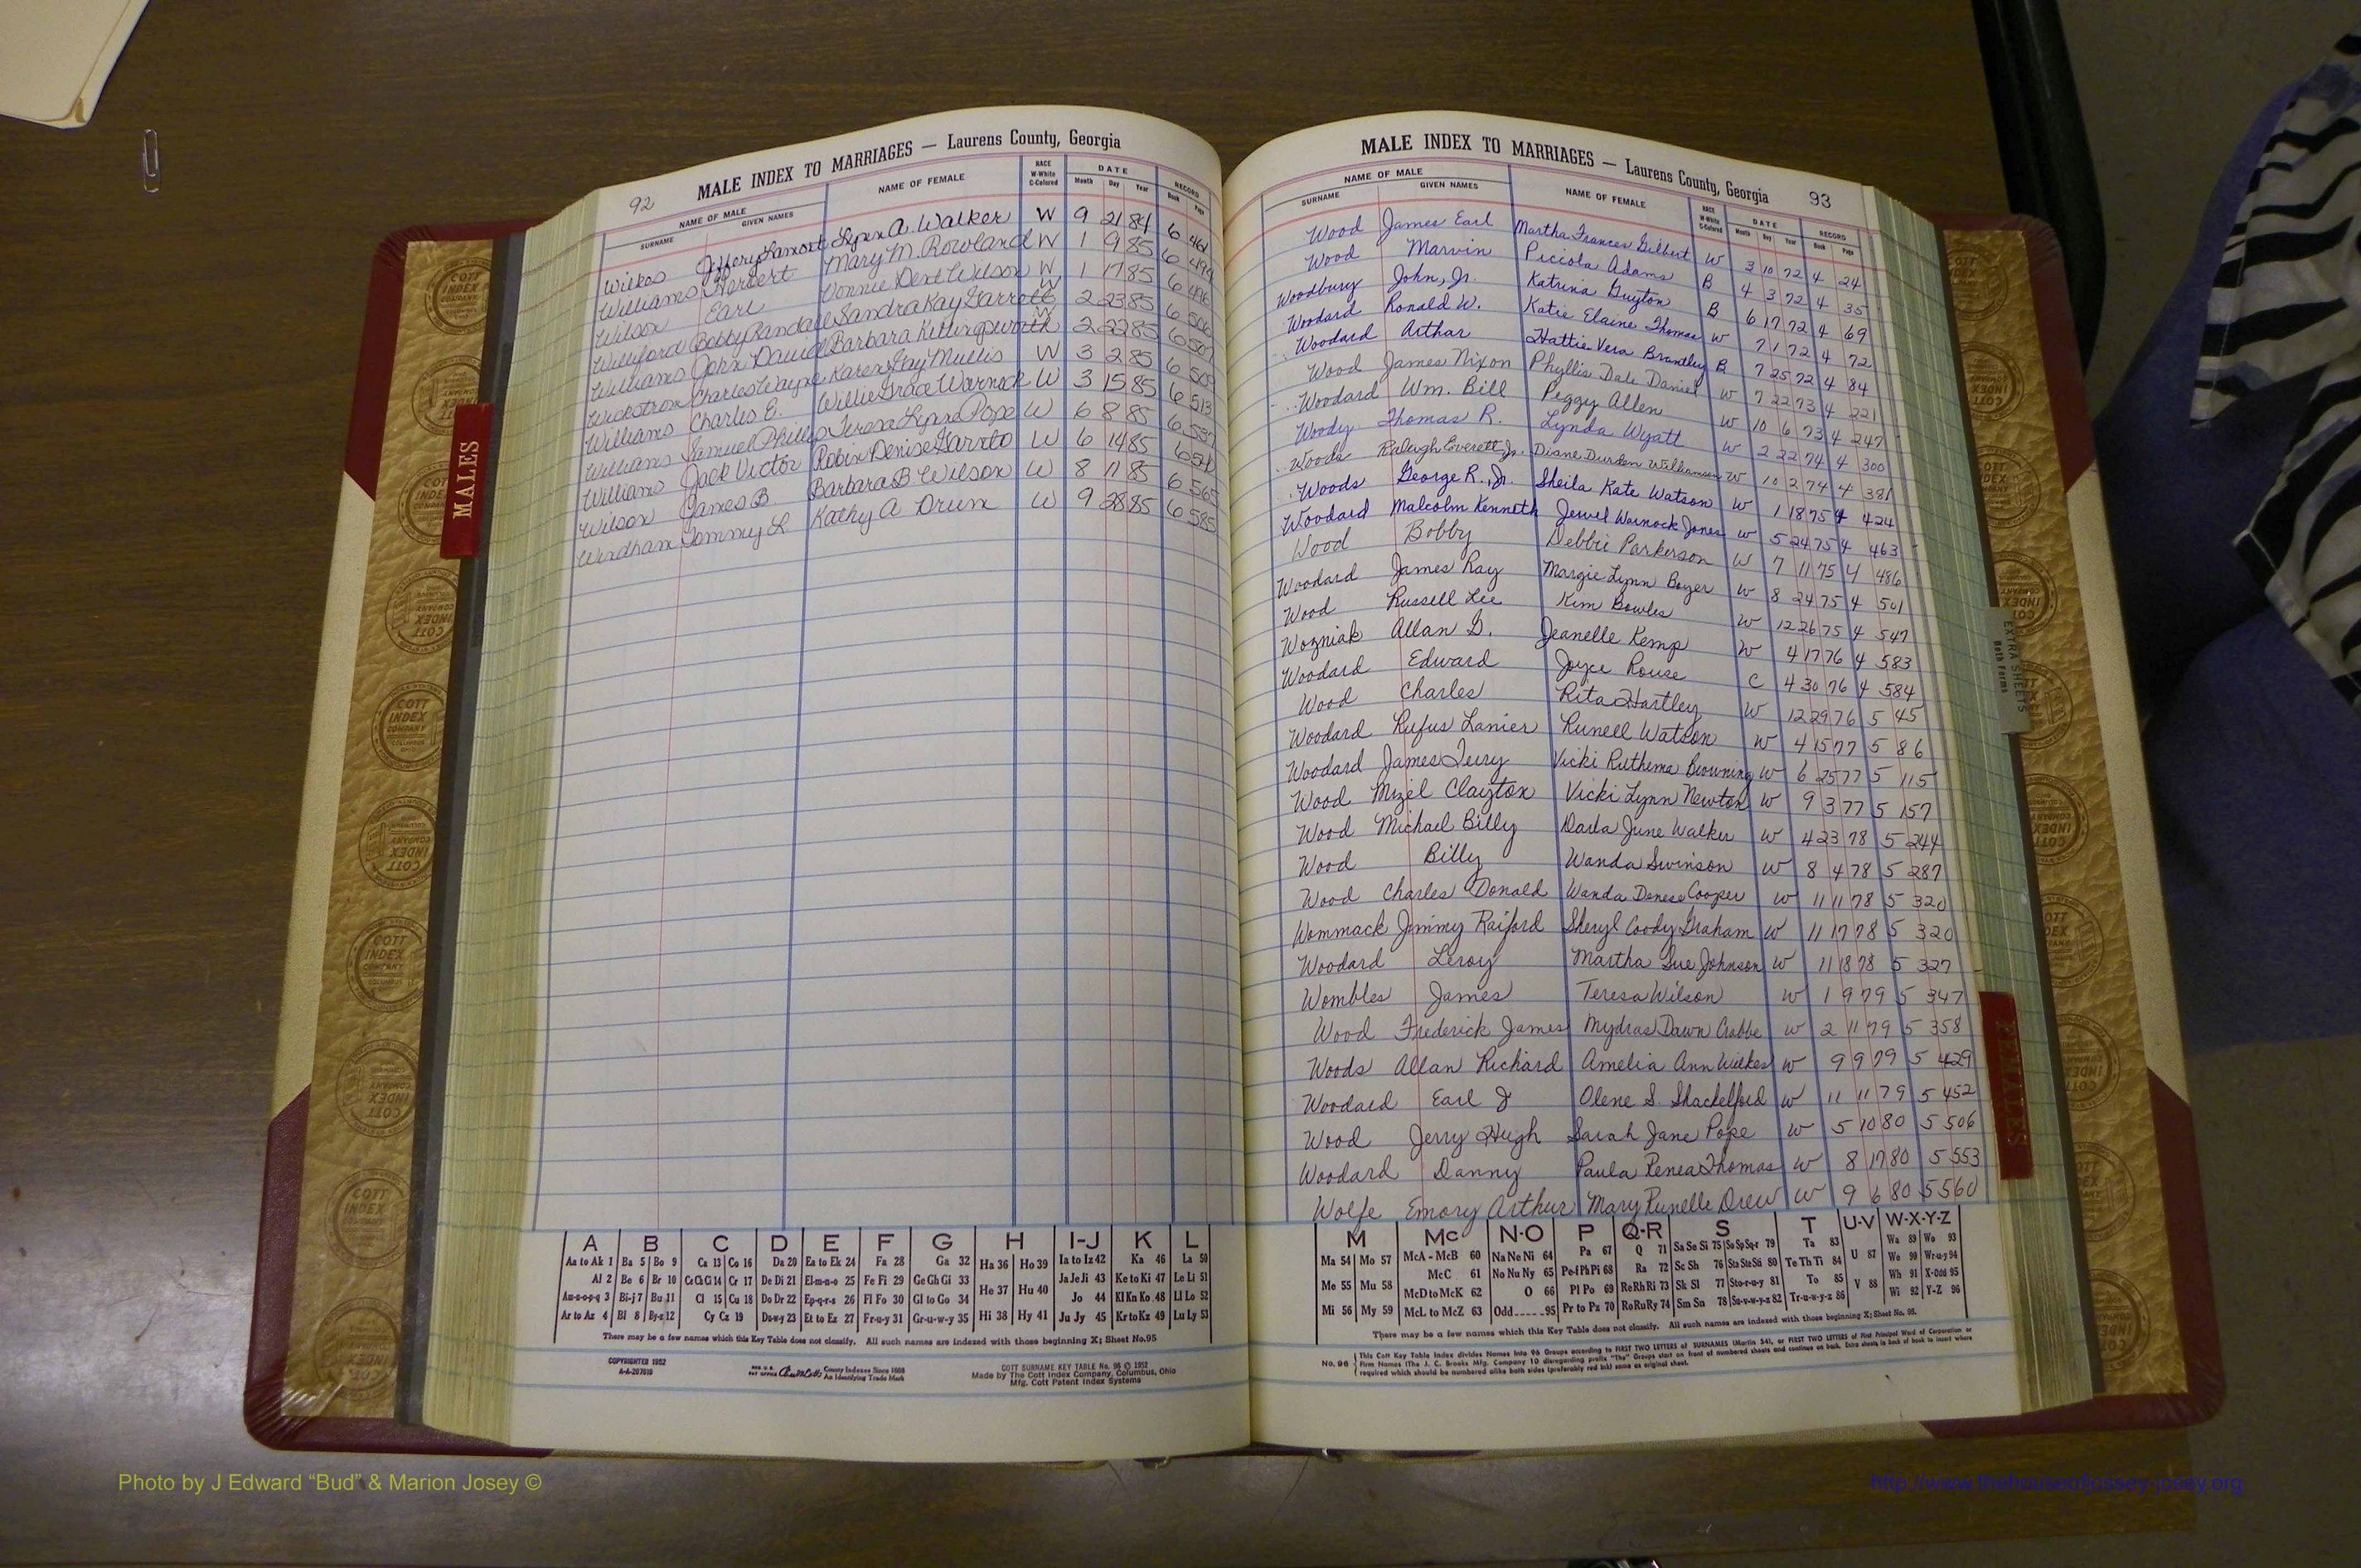 92 MALE INDEX TO MARRIAGES — Laurens County, Georgia
NAME OF MALE NAME OF FEMALE RACE W-White C-Colored DATE RECORD
SURNAME GIVEN NAMES Month Day Year Book Page
Wilkes Jeffery Lamont Lynn A. Walker W 9 21 84 6 461
Williams Herbert Mary M. Rowland W 1 9 85 6 494
Wilson Earl Vonnie Dent Wilson W 1 17 85 6 496
Williford Bobby Randall Sandra Kay Garrett W 2 23 85 6 506
Williams John David Barbara Killingsworth W 2 22 85 6 507
Wickstrom Charles Wayne Karen Gay Mullis W 3 2 85 6 509
Williams Charles E. Willie Grace Warnock W 3 15 85 6 513
Williams Samuel Phillip Teresa Lynn Pope W 6 8 85 6 537
Williams Jack Victor Robin Denise W 6 14 85 6
Wilson James B Barbara B Wilson W 8 11 85 6 565
Windham Tommy L Kathy A Drum W 9 28 85 6 585
MALE INDEX TO MARRIAGES — Laurens County, Georgia 93
NAME OF MALE NAME OF FEMALE RACE W-White C-Colored DATE RECORD
SURNAME GIVEN NAMES Month Day Year Book Page
Wood James Earl Martha Frances Gilbert W 3 10 72 4 24
Wood Marvin Piccola Adams B 4 3 72 4 35
Woodbury John, Jr. Katrina Guyton B 6 17 72 4 69
Woodard Ronald W. Katie Elaine Thomas W 7 1 72 4 72
Woodard Arthar Hattie Vera Brantley B 7 25 72 4 84
Wood James Nixon Phyllis Dale Daniel W 7 22 73 4 221
Woodard Wm. Bill Peggy Allen W 10 6 73 4 247
Woody Thomas R. Lynda Wyatt W 2 22 74 4 300
Woods Raleigh Everett, Jr. Diane Durden Williamson W 10 2 74 4 381
Woods George R., Jr. Sheila Kate Watson W 1 18 75 4 424
Woodard Malcolm Kenneth Jewel Warnock Jones W 5 24 75 4 463
Wood Bobby Debbie Parkerson W 7 11 75 4 486
Woodard James Ray Margie Lynn Boyer W 8 24 75 4 501
Wood Russell Lee Kim Bowles W 12 26 75 4 547
Wozniak Allan G. Jeanelle Kemp W 4 17 76 4 583
Woodard Edward Joyce Rouse C 4 30 76 4 584
Wood Charles Rita Hartley W 12 29 76 5 45
Woodard Rufus Lanier Runell Watson W 4 15 77 5 86
Woodard James Terry Vicki Ruthema Browning W 6 25 77 5 115
Wood Mizel Clayton Vicki Lynn Newton W 9 3 77 5 157
Wood Michael Billy Darla June Walker W 4 23 78 5 244
Wood Billy Wanda Swinson W 8 4 78 5 287
Wood Charles Donald Wanda Denese Cooper W 11 11 78 5 320
Wommack Jimmy Raiford Sheryl Coody Graham W 11 17 78 5 320
Woodard Leroy Martha Sue Johnson W 11 18 78 5 327
Wombles James Teresa Wilson W 1 9 79 5 347
Wood Frederick James Mydras Dawn Crabbe W 2 11 79 5 358
Woods Allan Richard Amelia Ann Wilkes W 9 9 79 5 429
Woodard Earl J Olene S. Shackelford W 11 11 79 5 452
Wood Jerry Hugh Sarah Jane Pope W 5 10 80 5 506
Woodard Danny Paula Renea Thomas W 8 17 80 5 553
Wolfe Emory Arthur Mary Runelle Drew W 9 6 80 5 560
MALES
FEMALES
EXTRA SHEETS
Both Forms
COTT INDEX COMPANY
A B C D E F G H I-J K L
Aa to Ak 1 Ba 5 Bo 9 Ca 13 Co 16 Da 20 Ea to Ek 24 Fa 28 Ga 32 Ha 36 Ho 39 Ia to Iz 42 Ka 46 La 50
Al 2 Be 6 Br 10 Ce Ch Ci 14 Cr 17 De Di 21 El-m-n-o 25 Fe Fi 29 Ge Gh Gi 33 He 37 Hu 40 Ja Je Ji 43 Ke to Ki 47 Le Li 51
Am-n-o-p-q 3 Bi-j 7 Bu 11 Cl 15 Cu 18 Do Dr 22 Ep-q-r-s 26 Fl Fo 30 Gl to Go 34 Jo 44 Kl Kn Ko 48 Ll Lo 52
Ar to Az 4 Bl 8 By-z 12 Cy Cz 19 Du-w-y 23 Et to Ez 27 Fr-u-y 31 Gr-u-w-y 35 Hi 38 Hy 41 Ju Jy 45 Kr to Kz 49 Lu Ly 53
There may be a few names which this Key Table does not classify. All such names are indexed with those beginning X; Sheet No. 95
COPYRIGHTED 1952
County Indexes Since 1888
An Identifying Trade Mark
COTT SURNAME KEY TABLE No. 96 © 1952
Made by The Cott Index Company, Columbus, Ohio
Mfg. Cott Patent Index Systems
M Mc N-O P Q-R S T U-V W-X-Y-Z
Ma 54 Mo 57 McA - McB 60 Na Ne Ni 64 Pa 67 Q 71 Sa Se Si 75 So Sp Sq-r 79 Ta 83 U 87 Wa 89 Wo 93
Me 55 Mu 58 McC 61 No Nu Ny 65 Pe-f Ph Pi 68 Ra 72 Sc Sh 76 Sta Ste Sti 80 Te Th Ti 84 We 90 Wr-u-y 94
McD to McK 62 O 66 Pl Po 69 Re Rh Ri 73 Sk Sl 77 Sto-r-u-y 81 To 85 V 88 Wh 91 X-Odd 95
Mi 56 My 59 McL to McZ 63 Odd 95 Pr to Pz 70 Ro Ru Ry 74 Sm Sn 78 Su-v-w-y-z 82 Tr-u-w-y-z 86 Wi 92 Y-Z 96
There may be a few names which this Key Table does not classify. All such names are indexed with those beginning X; Sheet No. 95.
No. 96 This Cott Key Table Index divides Names into 96 Groups according to FIRST TWO LETTERS of SURNAMES (Martin 54), or FIRST TWO LETTERS of First Principal Word of Corporation or
Firm Names (The J. C. Brooks Mfg. Company 10 disregarding prefix "The" Groups start on front of numbered sheets and continue on back. Extra sheets in back of book to insert where
required which should be numbered alike both sides (preferably red ink) same as original sheet.
Photo by J Edward “Bud” & Marion Josey ©
http://www.thehouseofjossey-josey.org